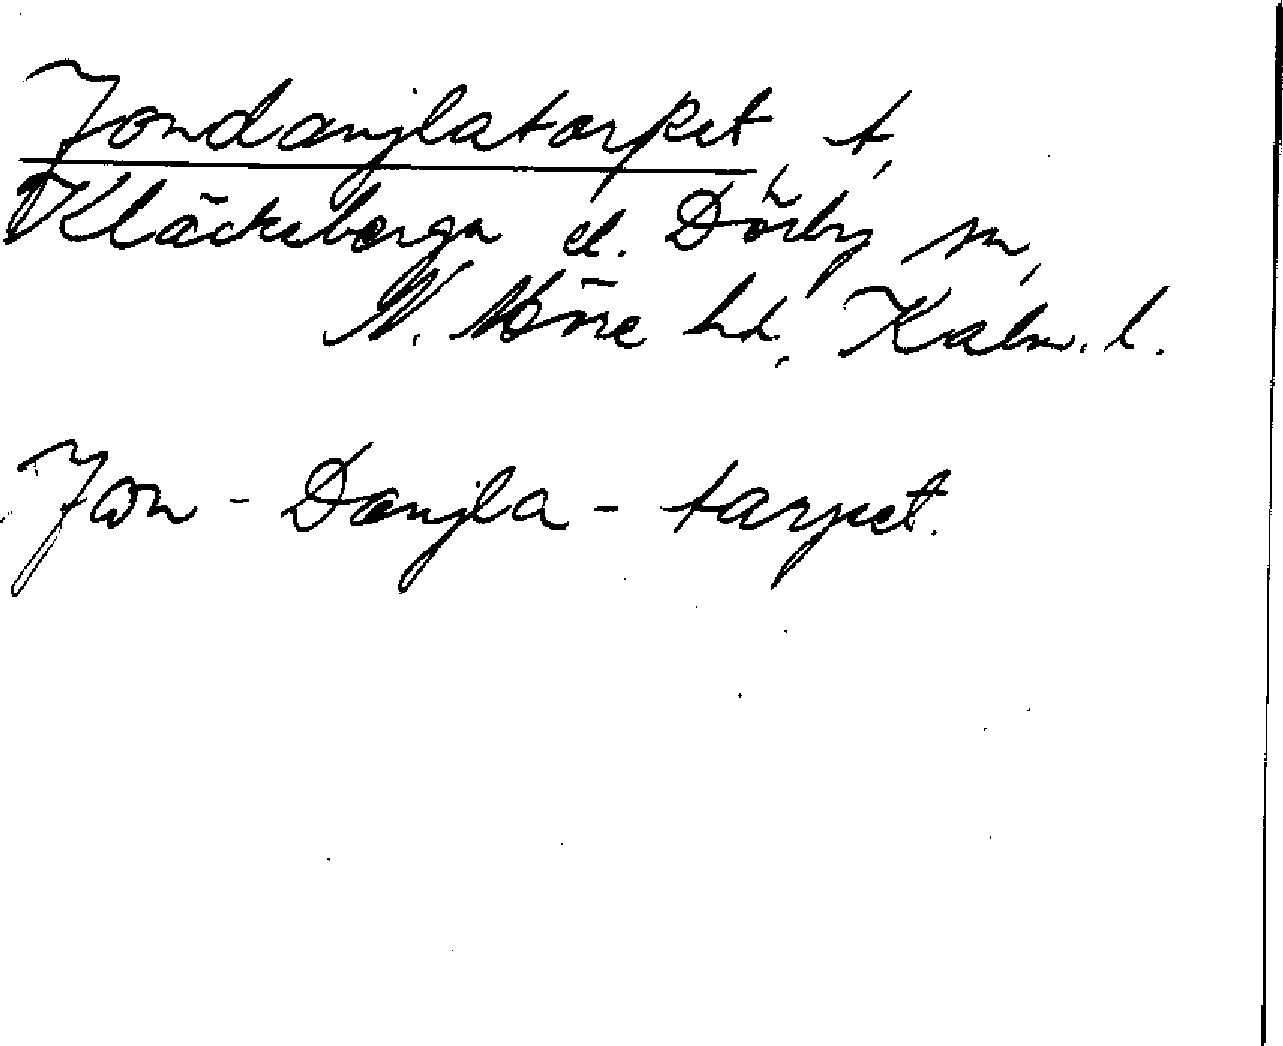 Jondanglatorpet, t,
Kläckeberga el. Dörby sn,
N. Möre hd, Kalm. l.
Jon - Dangla - torpet.